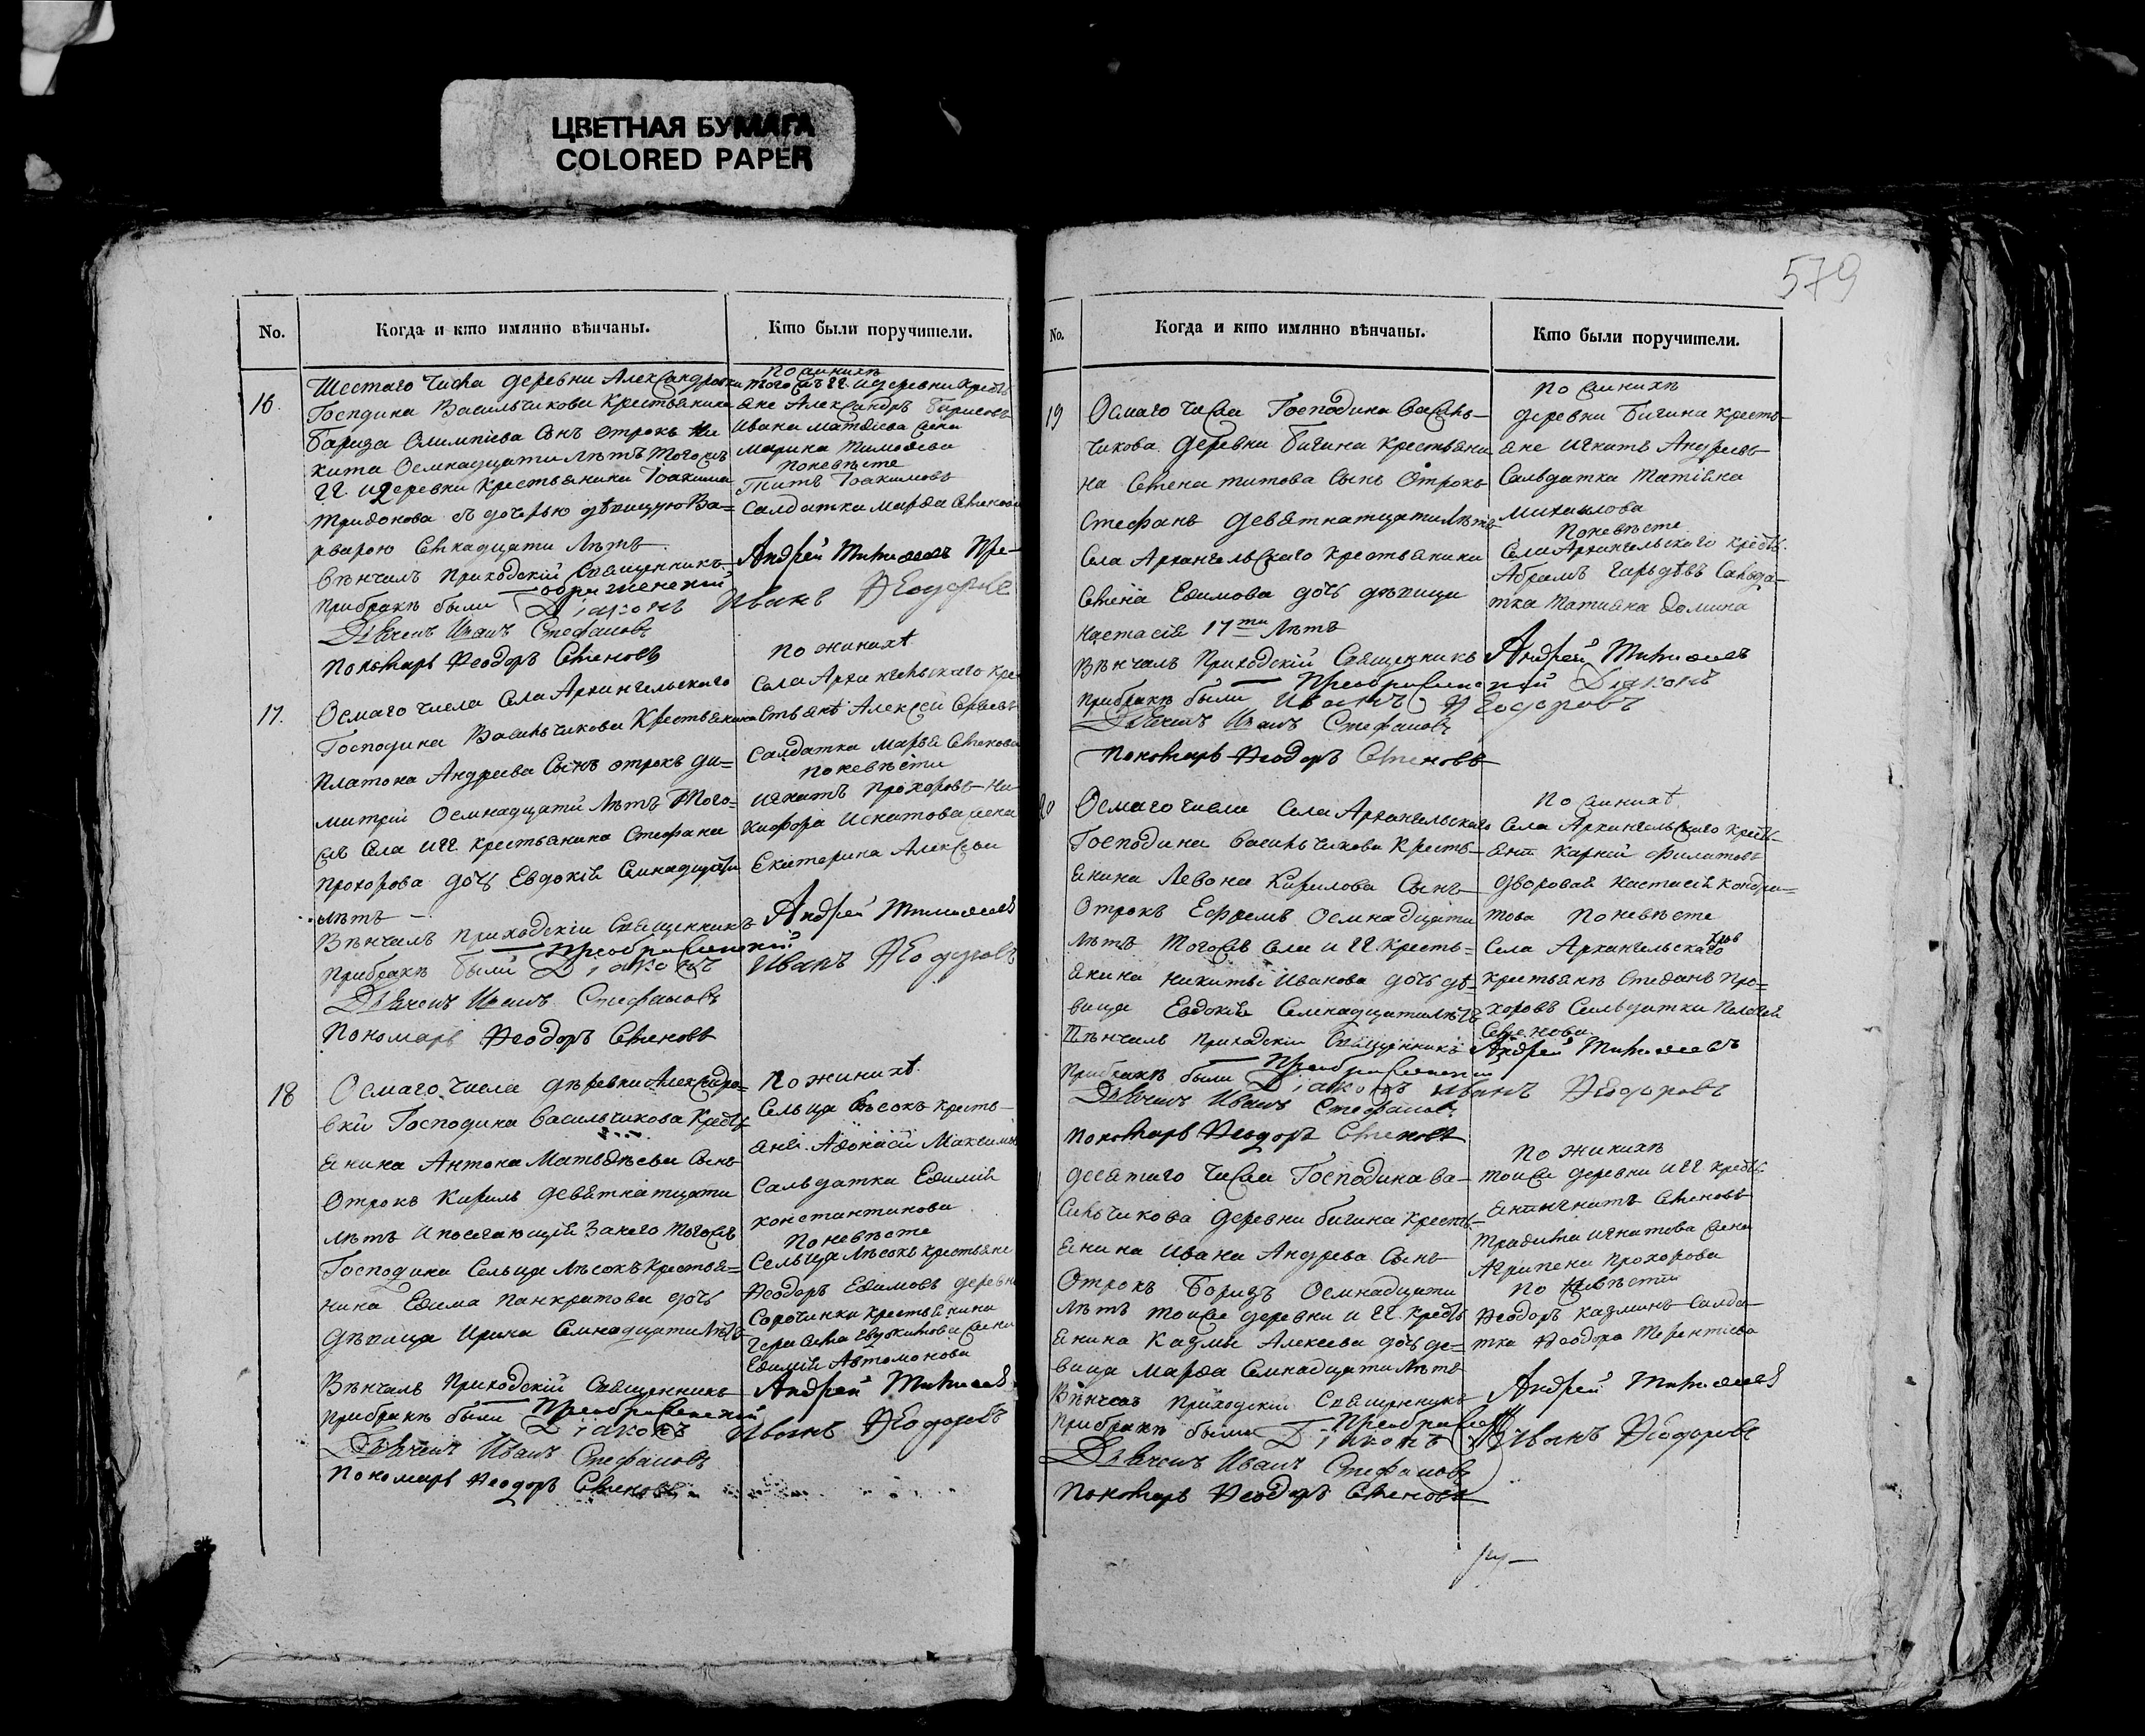 ЦВЕТНАЯ БУМАГА
COLORED PAPER
579
No.
Когда и кто имянно вѣнчаны.
Кто были поручители.
16.
Шестаго числа деревни Александровки
Господина Васильчикова крестьянина
Бариза Олимпіева сынъ отрокъ Ни
кита Осмнадцати лѣтъ тогожъ
ГГ. и деревни крестьянина Іоакима
Тридонова съ дочерью дѣвицую Ва=
рварою Семнадцати лѣтъ
Вѣнчалъ приходскій Священникъ
Прибракѣ были Діаконъ
Дьячекъ Иванъ Стефановъ
Пономарь Ѳеодоръ Семеновъ
По жинихѣ
того жъ ГГ. и деревни кресть
яне Александръ Барисовъ
Ивана Матвіева жена
Марина Тимоѳева
Поневѣсте
Титъ Іоакимовъ
Салдатка Марѳа Семенова
Андрей Тимоѳеевъ Пре-
ображенскій
Иванъ Ѳеодоровъ
17.
Осмаго числа Села Архангельскаго
Господина Васильчикова Крестьянина
Платона Андреева Сынъ отрокъ Ди=
митрій Осмнадцати лѣтъ Того=
жъ Села и ГГ. крестьянина Стефана
Прохорова дочь Евдокія Семнадцати
лѣтъ
Вѣнчалъ приходскіи Священникъ
Прибракѣ были Діаконъ
Дьячекъ Иванъ Стефановъ
Пономарь Ѳеодоръ Семеновъ
По жинихѣ
Села Архангельскаго кре
стьянѣ Алексей Сергеевъ
Салдатка Марья Семенова
Поневѣсти
Игнатъ Прохоровъ Ни
кифора Игнатова жена
Екатерина Алексеева
Андрей Тимоѳеевъ
Преображенскій
Иванъ Ѳеодоровъ
18
Осмаго числа дѣревни Александро=
вки Господина Васильчикова Кресть
янина Антона Матвѣева Сынъ
Отрокъ Кирилъ девятнатцати
лѣтъ и посегающей Занего тогожъ
Господина Сельца Лѣсокъ Крестья=
нина Ефима Панкратова дочь
Дѣвица Ирина Семнадцати лѣтъ
Вѣнчалъ Приходскій Священникъ
Прибракѣ были Діаконъ
Дьячекъ Иванъ Стефановъ
Пономарь Ѳеодоръ Семеновъ
По жинихѣ
Сельца Лѣсокъ кресть-
яне Аѳонасій Максимовъ
Сальдатка Ефимія
Константинова
Поневѣсте
Сельца Лѣсокъ крестьяне
Ѳеодоръ Ефимовъ деревни
Сорочинки крестьянина
Герасима Евдокимова жена
Ефимія Автомонова
Андрей Тимоѳеевъ
Преображенскій
Иванъ Ѳеодоровъ
No.
Когда и кто имянно вѣнчаны.
Кто были поручители.
19
Осмаго числа Господина Василь-
чикова деревни Бигина Крестьяни
на Семена Титова Сынъ Отрокъ
Стефанъ девятнатцати лѣтъ
Села Архангельскаго крестьянина
Семена Ефимова дочь дѣвица
Настасія 17ти лѣтъ
Вѣнчалъ Приходскій Священникъ
Прибракѣ были
Дьячекъ Иванъ Стефановъ
Пономарь Ѳеодоръ Семеновъ
По жинихѣ
деревни Бигина кресть-
яне Игнатъ Андреевъ
Сальдатка Татіяна
Михаилова
Поневѣсте
Села Архангельскаго кресть.
Абрамъ Гарьдѣвъ Сальда-
тка Татияна Домина
Андрей Тимоѳеевъ
Преображенскій Діаконъ
Иванъ Ѳеодоровъ
20
Осмаго числа Села Архангельскаго
Господина Васильчикова Кресть-
янина Левона Кирилова Сынъ
Отрокъ Ефремъ Осмнадцати
лѣтъ Тогожъ Села и ГГ. Кресть=
янина Никиты Иванова дочь дѣ=
вица Евдокія Семнадцати лѣтъ
Вѣнчалъ Приходскіи Священникъ
Прибракѣ были Діаконъ
Дьячекъ Иванъ Стефановъ
Пономарь Ѳеодоръ Семеновъ
По жинихѣ
Села Архангельскаго кресть-
янѣ Карней Филатовъ
дворовая Настасія Кондра=
това Поневѣсте
Села Архангельскаго
крестьянѣ Степанъ Про=
хоровъ Сальдатка Пелагея
Семенова
Андрей Тимоѳеевъ
Преображенскій
Иванъ Ѳеодоровъ
Десятаго числа Господина Ва-
сильчикова деревни Бигина Кресть-
янина Ивана Андреева Сынъ
Отрокъ Баризъ Осмнадцати
лѣтъ тоиже деревни и ГГ. Кресть
янина Казмы Алексеева дочь де=
вица Марѳа Семнадцати лѣтъ
Вѣнчалъ Приходскій Священникъ
Прибракѣ были Діаконъ
Дьячекъ Иванъ Стефановъ
Пономарь Ѳеодоръ Семеновъ
По жинихѣ
тоиже деревни и ГГ. кресть-
яни Игнатъ Семеновъ
Игнатова жена
Агрипена Прохорова
По невѣсти
Ѳеодоръ Казминъ Салда-
тка Ѳеодора Терентіева
Андрей Тимоѳеевъ
Преображенскій
Иванъ Ѳеодоровъ